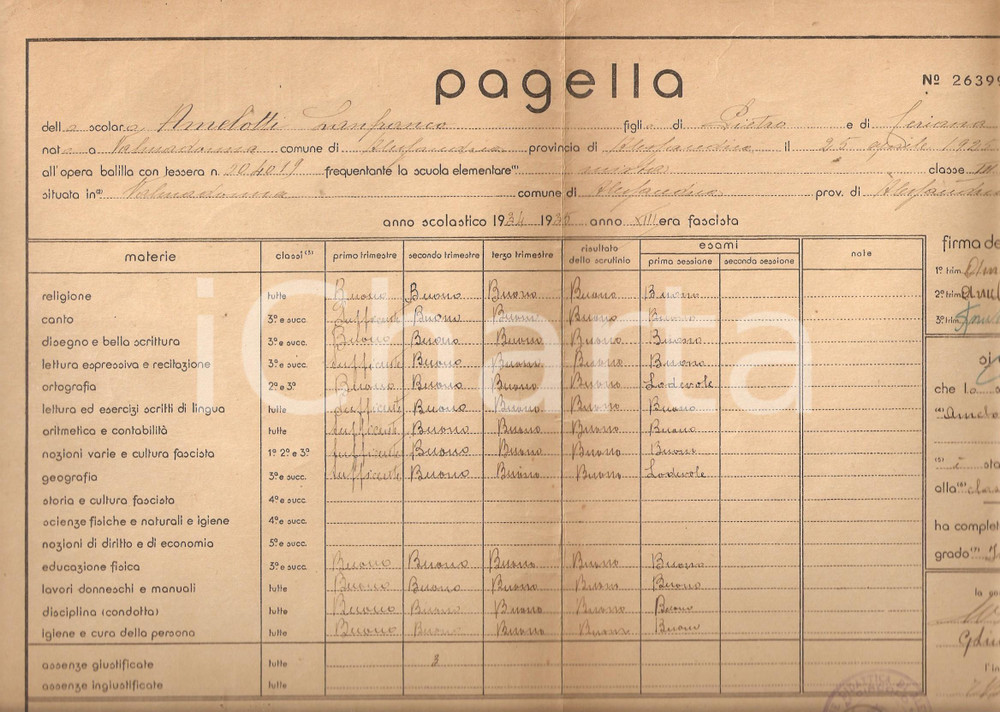 pagella
Nº 26399
della scolara Amelotti Lanfranco figlio di Pietro e di
nato a Valmadonna comune di Alessandria provincia di Alessandria il 25 aprile 1925
all'opera balilla con tessera n. 304019 frequentante la scuola elementare⁽¹⁾ mista classe III
situata in⁽²⁾ Valmadonna comune di Alessandria prov. di Alessandria
anno scolastico 1934 1935 anno XIII era fascista
materie classi⁽³⁾ primo trimestre secondo trimestre terzo trimestre risultato dello scrutinio esami prima sessione seconda sessione note
religione tutte Buono Buono Buono Buono Buono
canto 3ª e succ. sufficiente Buono Buono Buono Buono
disegno e bella scrittura 3ª e succ. Buono Buono Buono Buono Buono
lettura espressiva e recitazione 3ª e succ. sufficiente Buono Buono Buono Buono
ortografia 2ª e 3ª Buono Buono Buono Buono Lodevole
lettura ed esercizi scritti di lingua tutte sufficiente Buono Buono Buono Buono
aritmetica e contabilità tutte sufficiente Buono Buono Buono Buono
nozioni varie e cultura fascista 1ª 2ª e 3ª sufficiente Buono Buono Buono Buono
geografia 3ª e succ. sufficiente Buono Buono Buono Lodevole
storia e cultura fascista 4ª e succ.
scienze fisiche e naturali e igiene 4ª e succ.
nozioni di diritto e di economia 5ª e succ.
educazione fisica 3ª e succ. Buono Buono Buono Buono Buono
lavori donneschi e manuali tutte Buono Buono Buono Buono Buono
disciplina (condotta) tutte Buono Buono Buono Buono Buono
igiene e cura della persona tutte Buono Buono Buono Buono Buono
assenze giustificate tutte 3
assenze ingiustificate tutte
firma de
1º trim.
2º trim.
3º trim.
si
che lo s
Amelo
⁽⁵⁾ è sta
alla⁽⁶⁾ clas
ha complet
grado⁽⁷⁾
iCharta